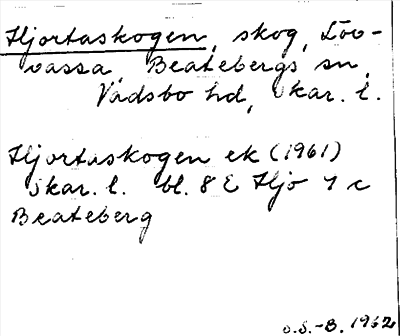 Hjortaskogen, skog, Löv-
vassa, Beatebergs sn,
Vadsbo hd, Skar. l.
Hjortaskogen ek (1961)
Skar. l. bl. 8 E Hjo 7 c
Beateberg
O.S.-B. 1962